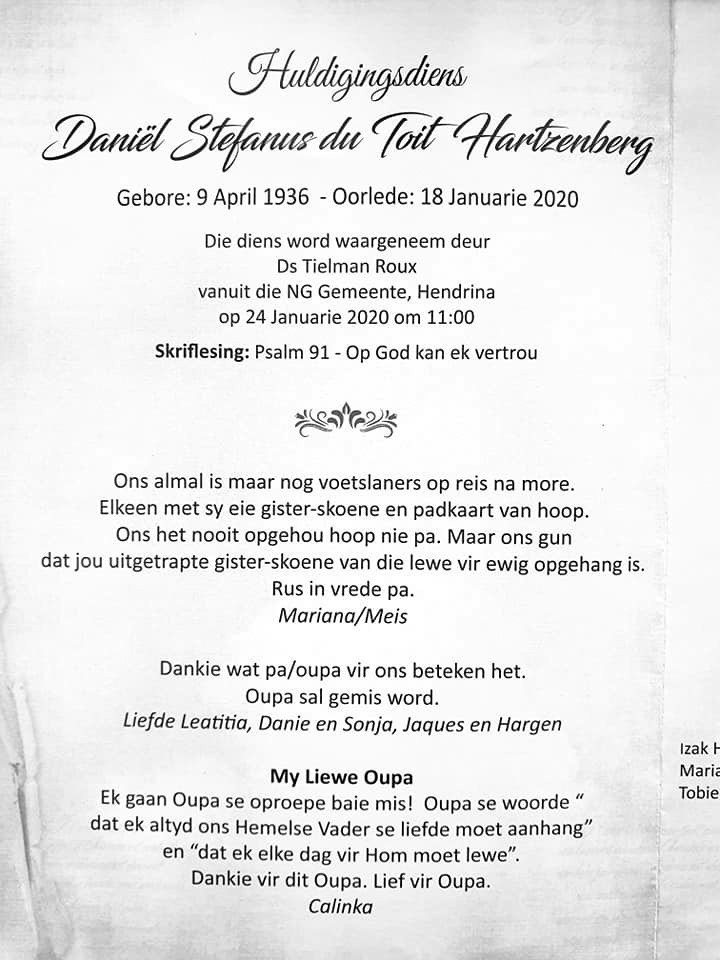 Huldigingsdiens
Daniël Stefanus du Toit Hartzenberg
Gebore: 9 April 1936 - Oorlede: 18 Januarie 2020
Die diens word waargeneem deur
Ds Tielman Roux
vanuit die NG Gemeente, Hendrina
op 24 Januarie 2020 om 11:00
Skriflesing: Psalm 91 - Op God kan ek vertrou
Ons almal is maar nog voetslaners op reis na more.
Elkeen met sy eie gister-skoene en padkaart van hoop.
Ons het nooit opgehou hoop nie pa. Maar ons gun
dat jou uitgetrapte gister-skoene van die lewe vir ewig opgehang is.
Rus in vrede pa.
Mariana/Meis
Dankie wat pa/oupa vir ons beteken het.
Oupa sal gemis word.
Liefde Leatitia, Danie en Sonja, Jaques en Hargen
My Liewe Oupa
Ek gaan Oupa se oproepe baie mis! Oupa se woorde “
dat ek altyd ons Hemelse Vader se liefde moet aanhang”
en “dat ek elke dag vir Hom moet lewe”.
Dankie vir dit Oupa. Lief vir Oupa.
Calinka
Izak